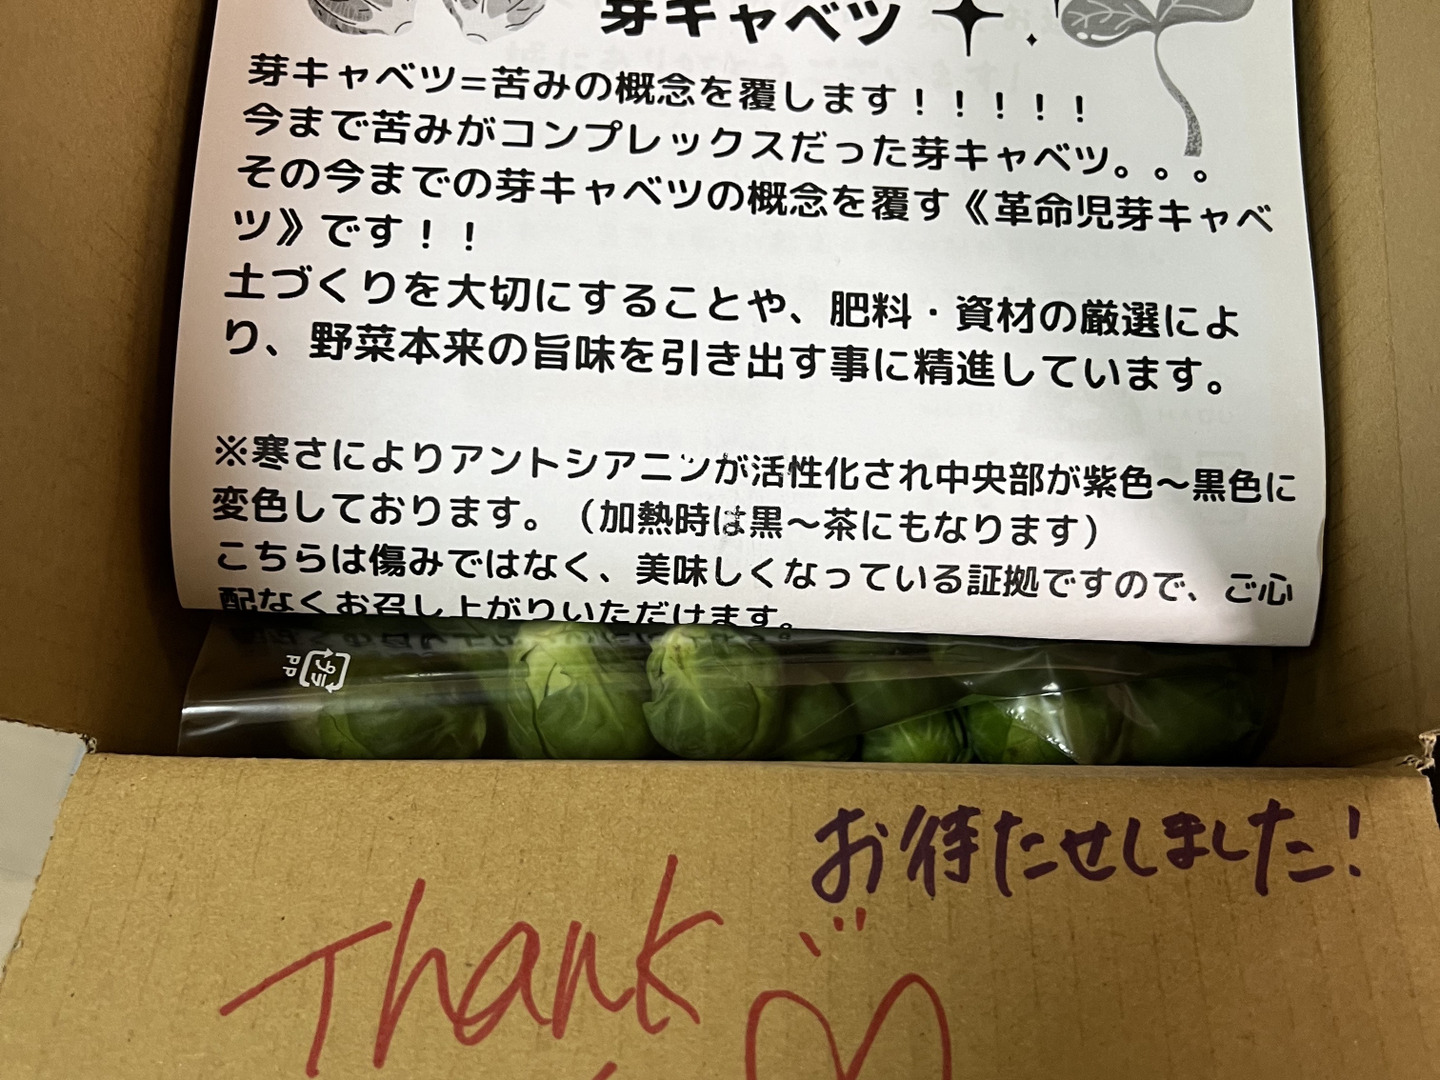 芽キャベツ
芽キャベツ=苦みの概念を覆します！！！！！
今まで苦みがコンプレックスだった芽キャベツ。。。
その今までの芽キャベツの概念を覆す《革命児芽キャベ
ツ》です！！
土づくりを大切にすることや、肥料・資材の厳選によ
り、野菜本来の旨味を引き出す事に精進しています。
※寒さによりアントシアニンが活性化され中央部が紫色～黒色に
変色しております。（加熱時は黒～茶にもなります）
こちらは傷みではなく、美味しくなっている証拠ですので、ご心
配なくお召し上がりいただけます。
プラ
PP
お待たせしました!
Thank